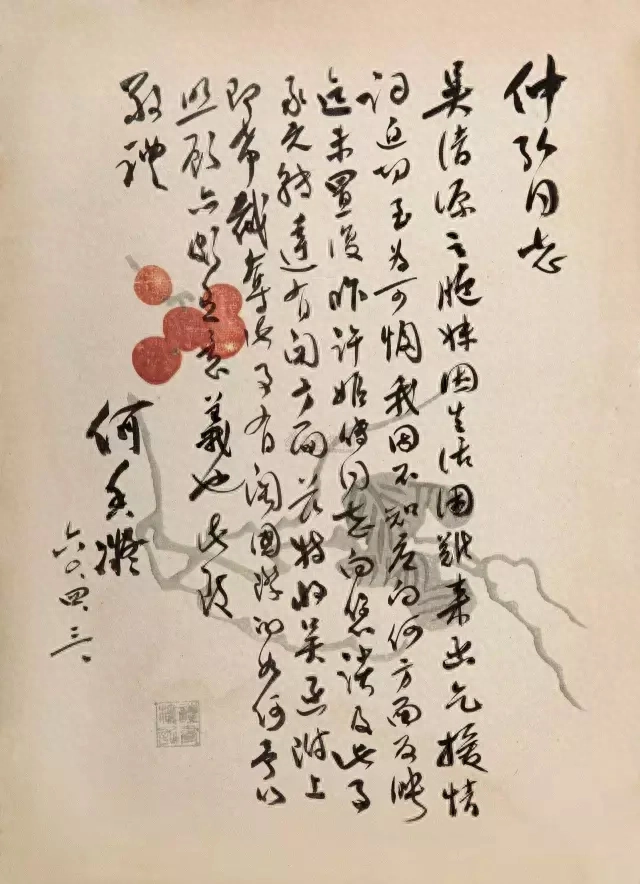 仲弘同志
吴清源之胞妹因生活困难来函乞援情
词迫切至为可悯我因不知应向何方面反映
迄未置复昨许姬传同志向您谈及此事
承允转达有关方面兹特将吴函附上
即希裁夺此事有关国际的如何予以
照顾亦彰主义也此致
敬礼
何香凝
六〇.四.三.